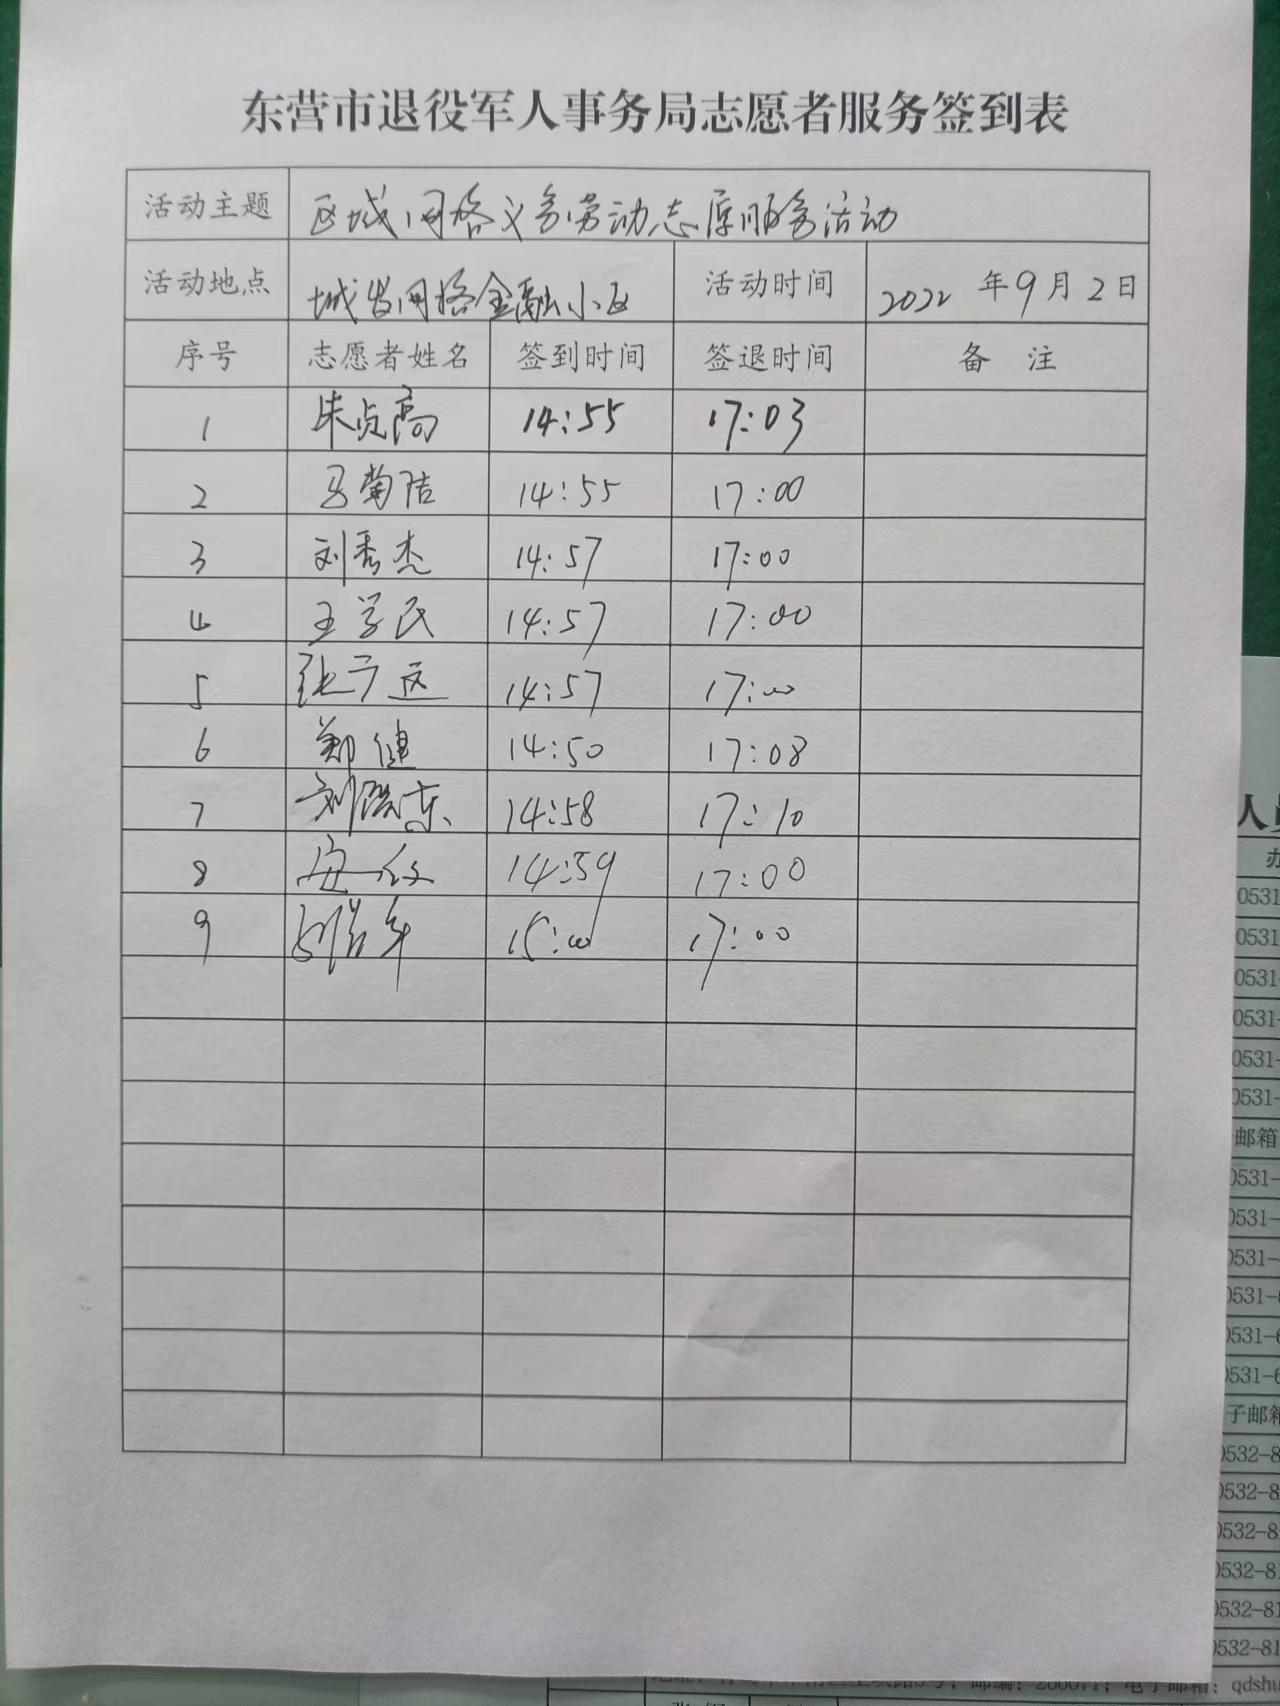 东营市退役军人事务局志愿者服务签到表
活动主题 区域网格义务劳动志愿服务活动
活动地点 城发网格金融小区 活动时间 2022 年9月2日
序号 志愿者姓名 签到时间 签退时间 备 注
1 朱贞高 14:55 17:03
2 马菊洁 14:55 17:00
3 刘秀杰 14:57 17:00
4 王学民 14:57 17:00
5 张 14:57 17:00
6 郑健 14:50 17:08
7 刘 东 14:58 17:10
8 14:59 17:00
9 15:00 17:00
人员
0531
0531
0531-
0531-
0531-
0531-
邮箱
0531-
0531-
0531-
0531-6
0531-6
0531-6
子邮箱
0532-8
0532-8
0532-8
0532-81
0532-81
0532-81
邮编: 266071; 电子邮箱: qdshu